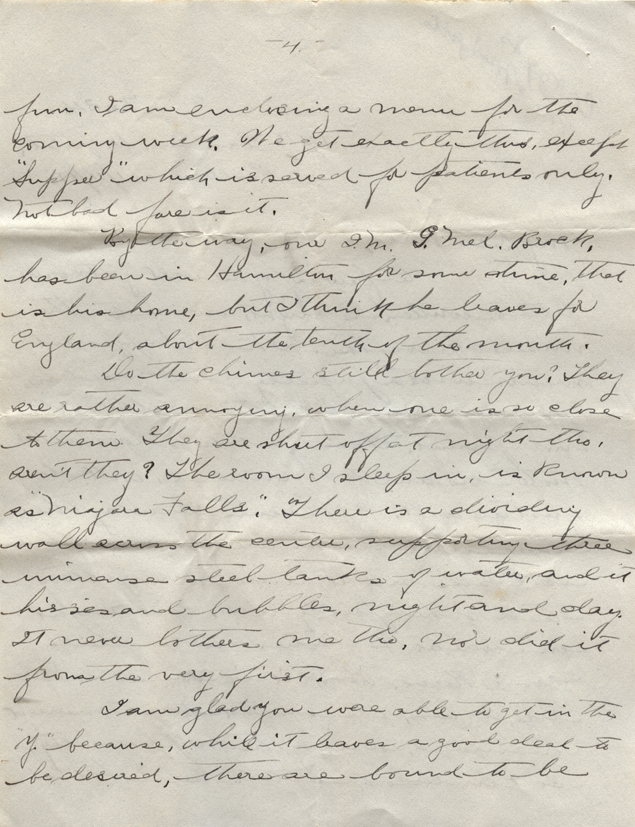 -4-
fun. I am enclosing a menu for the
coming week. We get exactly this, except
"Supper" which is served for patients only.
Not bad fare is it.
By the way, one I.M. G. Mel. Brock,
has been in Hamilton for some time, that
is his home, but I think he leaves for
England, about the tenth of the month.
Do the chimes still bother you? They
are rather annoying, when one is so close
to them. They are shut off at night tho,
aren't they? The room I sleep in, is known
as "Niagara Falls". There is a dividing
wall across the centre, supporting three
immense steel tanks of water, and it
hisses and bubbles, night and day.
It never bothers me tho, nor did it
from the very first.
I am glad you were able to get in the
Y." because, while it leaves a good deal to
be desired, there are bound to be